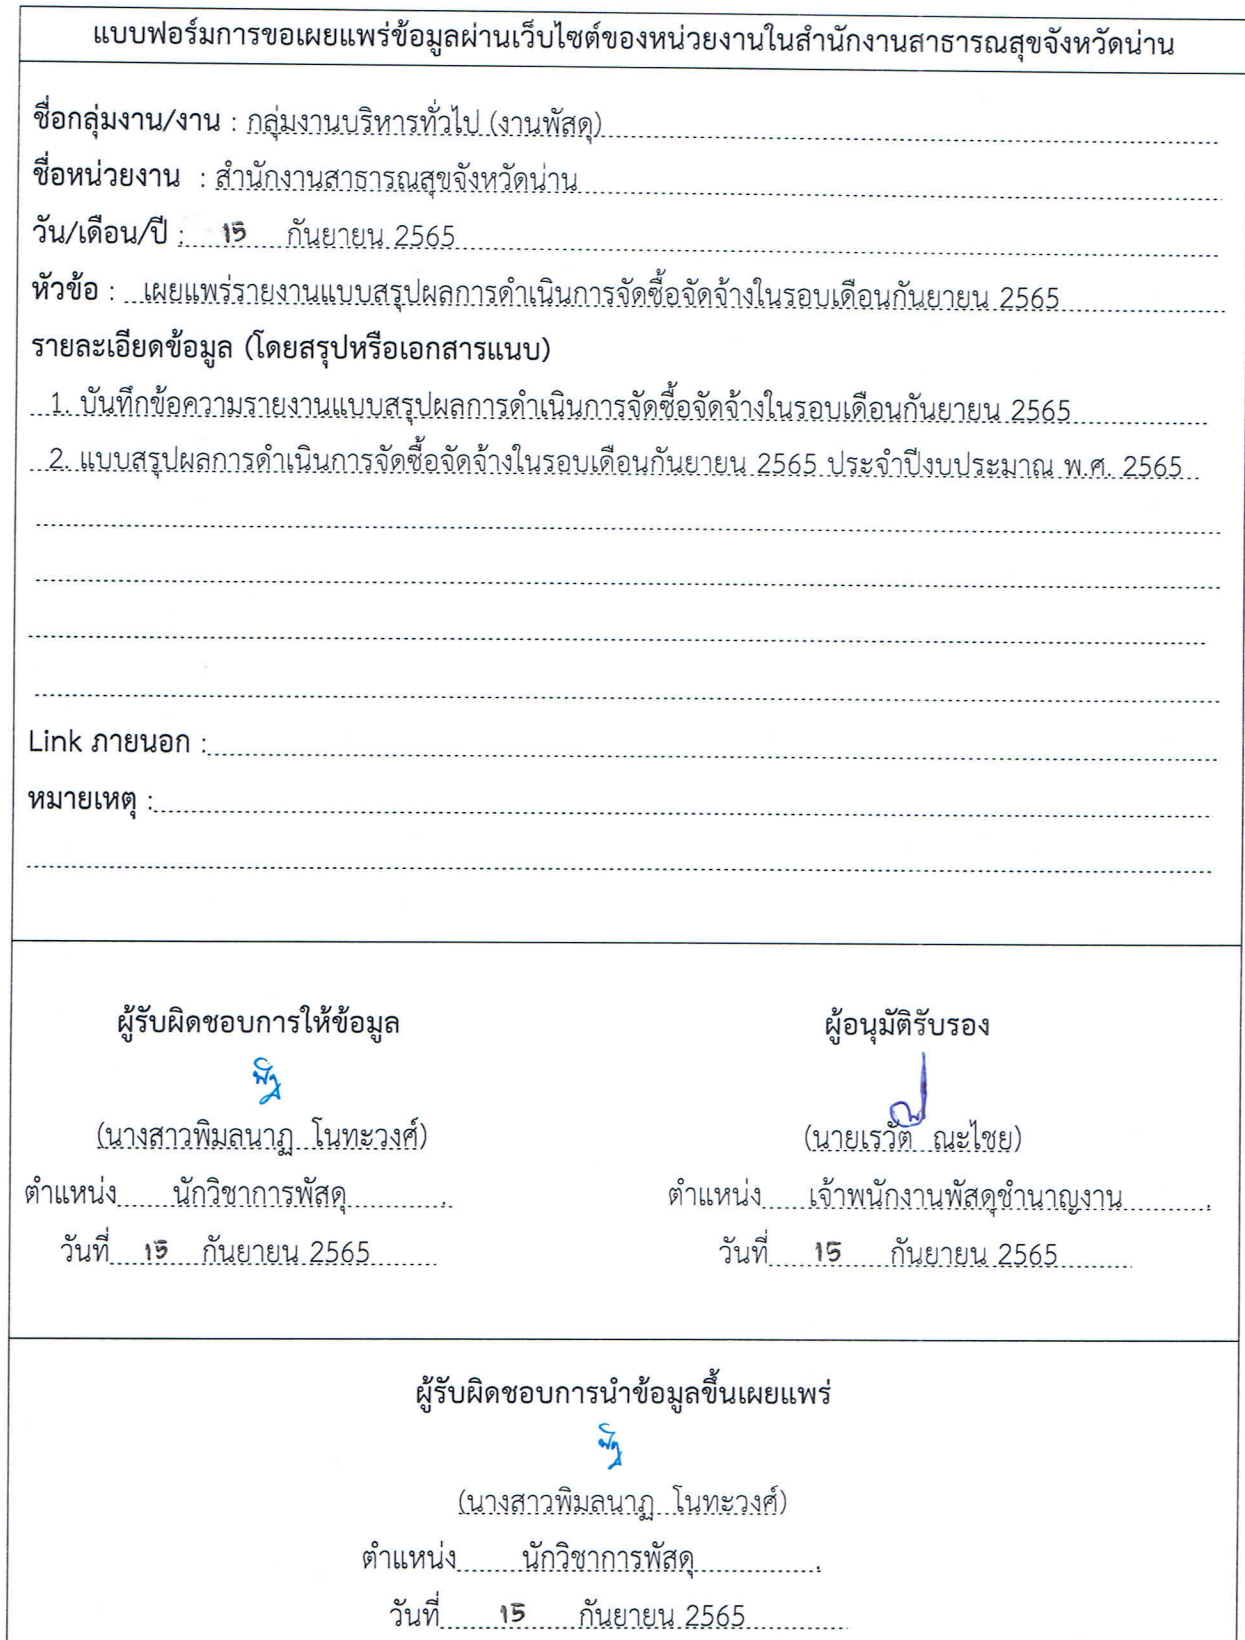 แบบฟอร์มการขอเผยแพร่ข้อมูลผ่านเว็บไซต์ของหน่วยงานในสำนักงานสาธารณสุขจังหวัดน่าน
ชื่อกลุ่มงาน/งาน : กลุ่มงานบริหารทั่วไป (งานพัสดุ)
ชื่อหน่วยงาน : สำนักงานสาธารณสุขจังหวัดน่าน
วัน/เดือน/ปี : 15 กันยายน 2565
หัวข้อ : เผยแพร่รายงานแบบสรุปผลการดำเนินการจัดซื้อจัดจ้างในรอบเดือนกันยายน 2565
รายละเอียดข้อมูล (โดยสรุปหรือเอกสารแนบ)
1. บันทึกข้อความรายงานแบบสรุปผลการดำเนินการจัดซื้อจัดจ้างในรอบเดือนกันยายน 2565
2. แบบสรุปผลการดำเนินการจัดซื้อจัดจ้างในรอบเดือนกันยายน 2565 ประจำปีงบประมาณ พ.ศ. 2565
Link ภายนอก :
หมายเหตุ :
ผู้รับผิดชอบการให้ข้อมูล ผู้อนุมัติรับรอง
(นางสาวพิมลนาฏ โนทะวงศ์) (นายเรวัต ณะไชย)
ตำแหน่ง นักวิชาการพัสดุ . ตำแหน่ง เจ้าพนักงานพัสดุชำนาญงาน .
วันที่ 15 กันยายน 2565 วันที่ 15 กันยายน 2565
ผู้รับผิดชอบการนำข้อมูลขึ้นเผยแพร่
(นางสาวพิมลนาฏ โนทะวงศ์)
ตำแหน่ง นักวิชาการพัสดุ .
วันที่ 15 กันยายน 2565